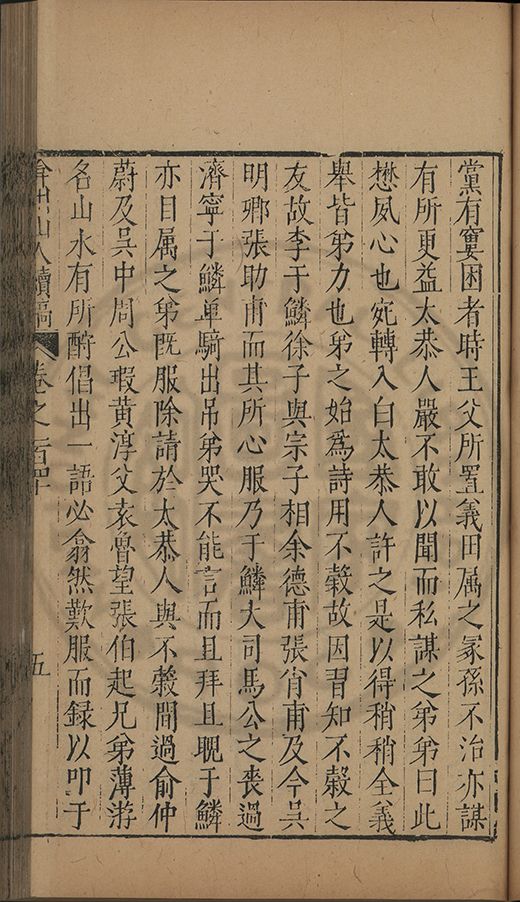 黨有窶困者時王父所置義田属之冢孫不治亦謀
有所更益太恭人嚴不敢以聞而私謀之弟弟曰此
懋夙心也宛轉入白太恭人許之是以得稍稍全義
舉皆弟力也弟之始爲詩用不穀故因習知不穀之
友故李于鱗徐子與宗子相余德甫張肖甫及今吳
明卿張助甫而其所心服乃于鱗大司馬公之喪過
濟寧于鱗單騎出吊弟哭不能言而且拜且覸于鱗
亦目属之弟既服除請於太恭人與不穀間過俞仲
蔚及吳中周公瑕黃淳父袁魯望張伯起兄弟薄游
名山水有所酧倡出一語必翕然歎服而録以叩于
弇州山人續稿 卷之一百四十 五